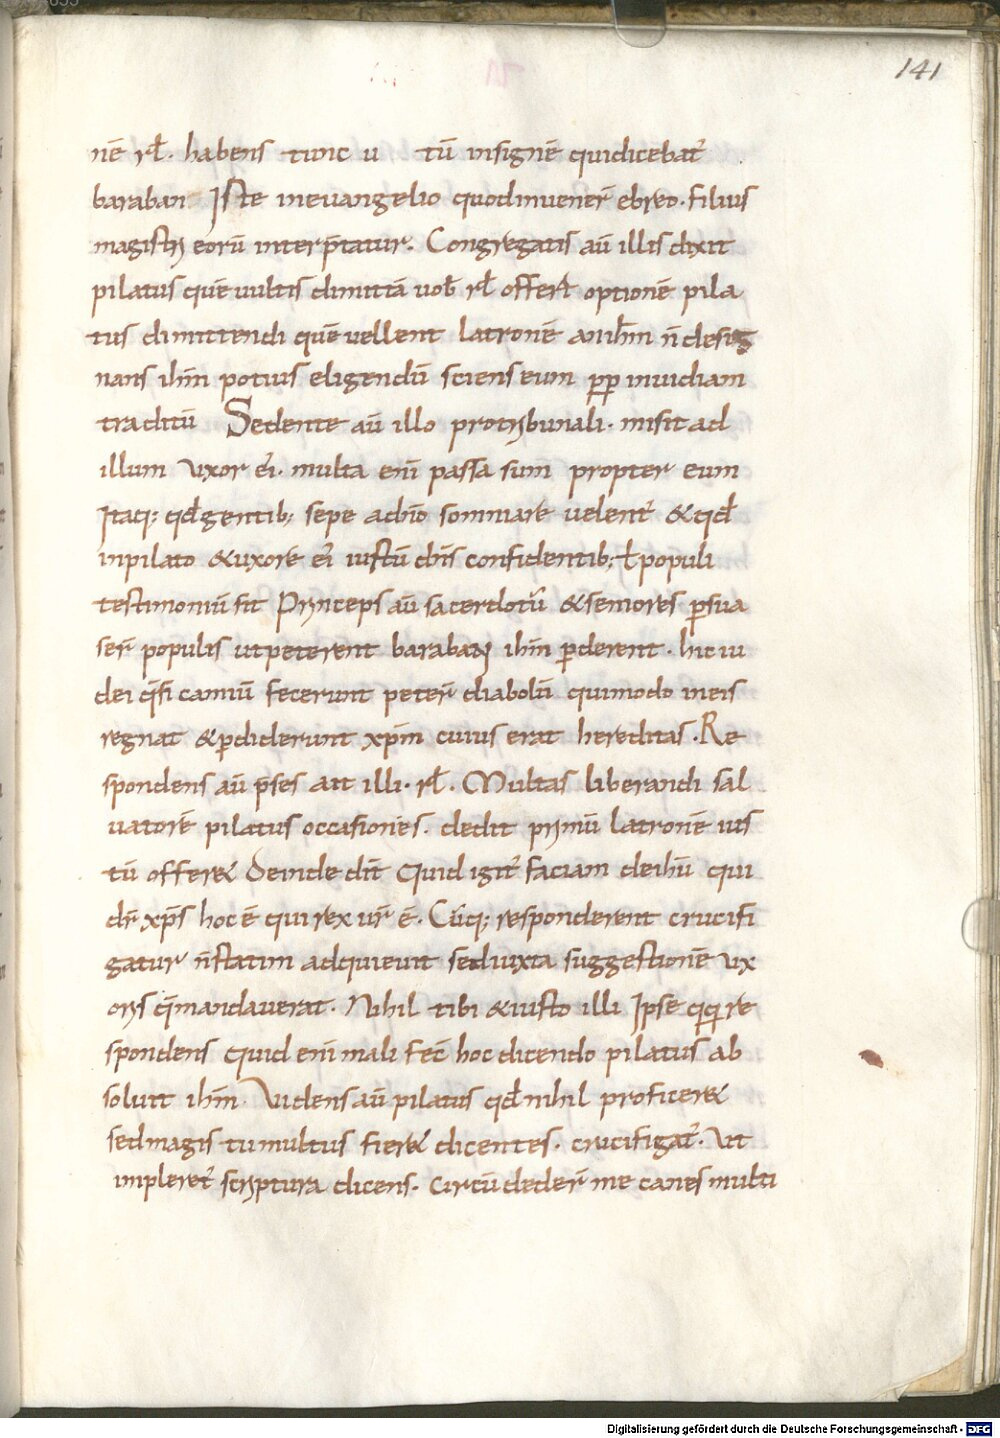 141
nē rł. habens tunc u tū insignē quidicebat᷑
baraban Iste ineuangelio quodinuener̄ ebreo. filius
magistri eorū interp̄tatur. Congregatis aū illis dixit
pilatus quē uultis dimittā uob̄ rł offert optionē pila
tus dimittendi quē uellent latronē an ihm̄ n̄ desig
nans ihm̄ potius eligendū sciens eum pp̄ inuidiam
traditū Sedente aū illo protribunali. misit ad
illum uxor ei᷒. multa eni᷒ passa sum propter eum
Itaq; qđ gentib; sepe adō somniare uelent᷑ & qđ
inpilato & uxore ei᷒ iustū dn̄s confidentib; ł populi
testimoniū sit Princeps aū sacerdotū & seniores p̲sua
ser̄ populis utpeterent baraban ihm̄ p̲derent. hic iu
dei q̄sificamiū fecerunt peter̄ diabolū quimodo ineis
regnat & p̲diderunt xp̄m cuius erat hereditas. Re
spondens aū p̄ses ait illi. rł. Multas liberandi sal
uatorē pilatus occasiones. dedit primū latronē ius
tū offerex̄ Deinde dix̄ Quid igit᷑ faciam deihū qui
dr̄ xp̄s hoc ē qui rex ur̄ ē. Cūq; responderent crucifi
gatur n̄ statim adquieuit sed iuxta suggestionē ux
oris q̄ mandauerat. Nihil tibi & iusto illi Ipse qq; re
spondens Quid eni᷒ mali fec̄ hoc dicendo pilatus ab
soluit ihm̄. Uidens aū pilatus qđ nihil proficer&
sed magis tumultus fier& dicentes. crucifigat᷑. Ut
impleret᷑ scriptura dicens. Circūdeder̄ me canes multi
Digitalisierung gefördert durch die Deutsche Forschungsgemeinschaft - DFG